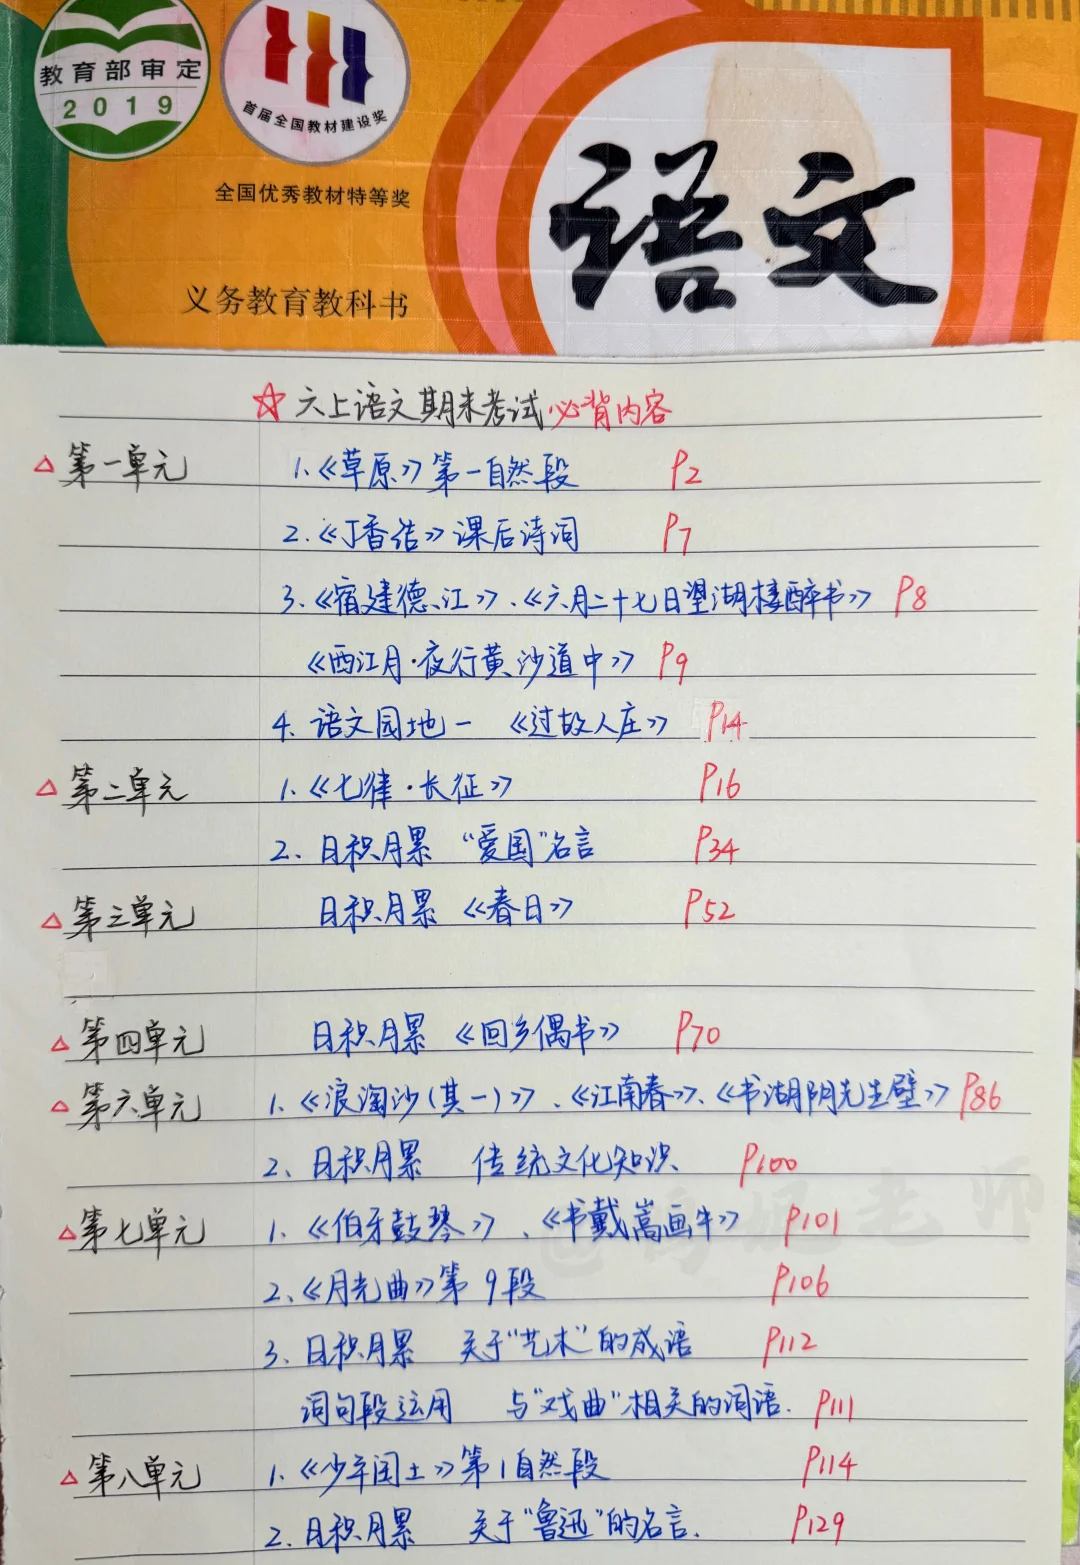 教育部审定
2019
首届全国教材建设奖
全国优秀教材特等奖
义务教育教科书
语文
☆六上语文期末考试必背内容
△第一单元 1.《草原》第一自然段 P2
2.《丁香结》课后诗词 P7
3.《宿建德江》、《六月二十七日望湖楼醉书》 P8
《西江月·夜行黄沙道中》 P9
4. 语文园地一 《过故人庄》 P14
△第二单元 1.《七律·长征》 P16
2. 日积月累 “爱国”名言 P34
△第三单元 日积月累 《春日》 P52
△第四单元 日积月累 《回乡偶书》 P70
△第六单元 1.《浪淘沙(其一)》、《江南春》、《书湖阴先生壁》 P86
2、日积月累 传统文化知识、 P100
△第七单元 1.《伯牙鼓琴》、《书戴嵩画牛》 P101
2、《月光曲》第9段 P106
3、日积月累 关于“艺术”的成语 P112
词句段运用 与“戏曲”相关的词语. P111
△第八单元 1.《少年闰土》第1自然段 P114
2. 日积月累 关于“鲁迅”的名言. P129